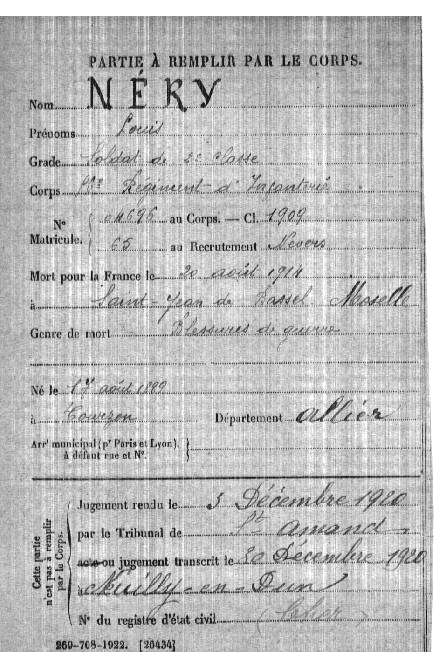 PARTIE À REMPLIR PAR LE CORPS.
Nom NÉRY
Prénoms Louis
Grade Soldat de 2e classe
Corps Régiment d'Infanterie
N° Matricule. 04696 au Corps. — Cl. 1909
65 au Recrutement Nevers
Mort pour la France le 20 août 1914
à Saint-Jean de Bassel Moselle
Genre de mort Blessures de guerre
Né le 17 août 1889
à Département Allier
Arrt municipal (pr Paris et Lyon),
à défaut rue et N°.
Cette partie
n'est pas à remplir
par le Corps.
Jugement rendu le 3 Décembre 1920
par le Tribunal de St Amand
acte ou jugement transcrit le 30 Décembre 1920
à Neuilly-en-Dun
N° du registre d'état civil (Cher)
269-708-1922. [26434]